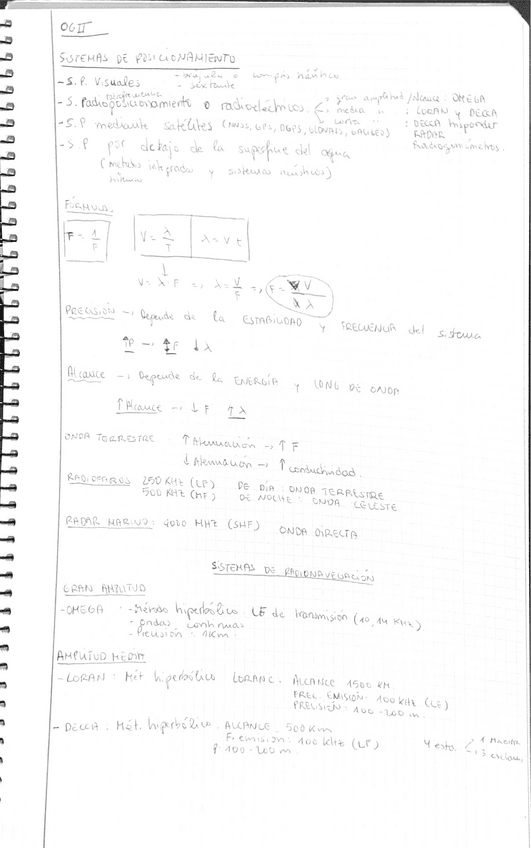 OG II
SISTEMAS DE POSICIONAMIENTO
- S.P. Visuales - aguja o compás náutico
- sextante
- S. Radioposicionamiento o radioeléctricos. gran amplitud / Alcance : OMEGA
media " : LORAN y DECCA
corta " : DECCA
RADAR
- S.P mediante satélites (NNSS, GPS, DGPS, GLONASS, GALILEO)
- S P por debajo de la superficie del agua
(metodos integrados y sistemas acústicos)
sistemas
FÓRMULAS
F = 1/P V = λ/T λ = V t
V = λ F => λ = V/F => F = V/λ
PRECISIÓN -> Depende de la ESTABILIDAD y FRECUENCIA del sistema
↑P -> ↑F ↓λ
Alcance -> Depende de la ENERGÍA y LONG DE ONDA
↑Alcance -> ↓F ↑λ
ONDA TERRESTRE ↑Atenuación -> ↑F
↓Atenuación -> ↑conductividad.
RADIOFAROS 250 KHz (LF) DE DÍA : ONDA TERRESTRE
500 KHz (MF) DE NOCHE : ONDA CELESTE
RADAR MARINO : 4000 MHZ (SHF) ONDA DIRECTA
SISTEMAS DE RADIONAVEGACIÓN
GRAN AMPLITUD
- OMEGA : - Método hiperbólico. LF de transmisión (10, 14 KHz)
- ondas continuas
- Precisión : 1Km.
AMPLITUD MEDIA
- LORAN : Mét hiperbólico LORAN C. ALCANCE 1500 KM.
FREC. EMISIÓN : 100 KHz (LF)
PRECISIÓN : 100 - 200 m.
- DECCA. Mét. hiperbólico. ALCANCE 500 Km
F. emision : 100 KHz (LF) 4 esta. 1 Maestra
P 100-200 m 3 esclavas